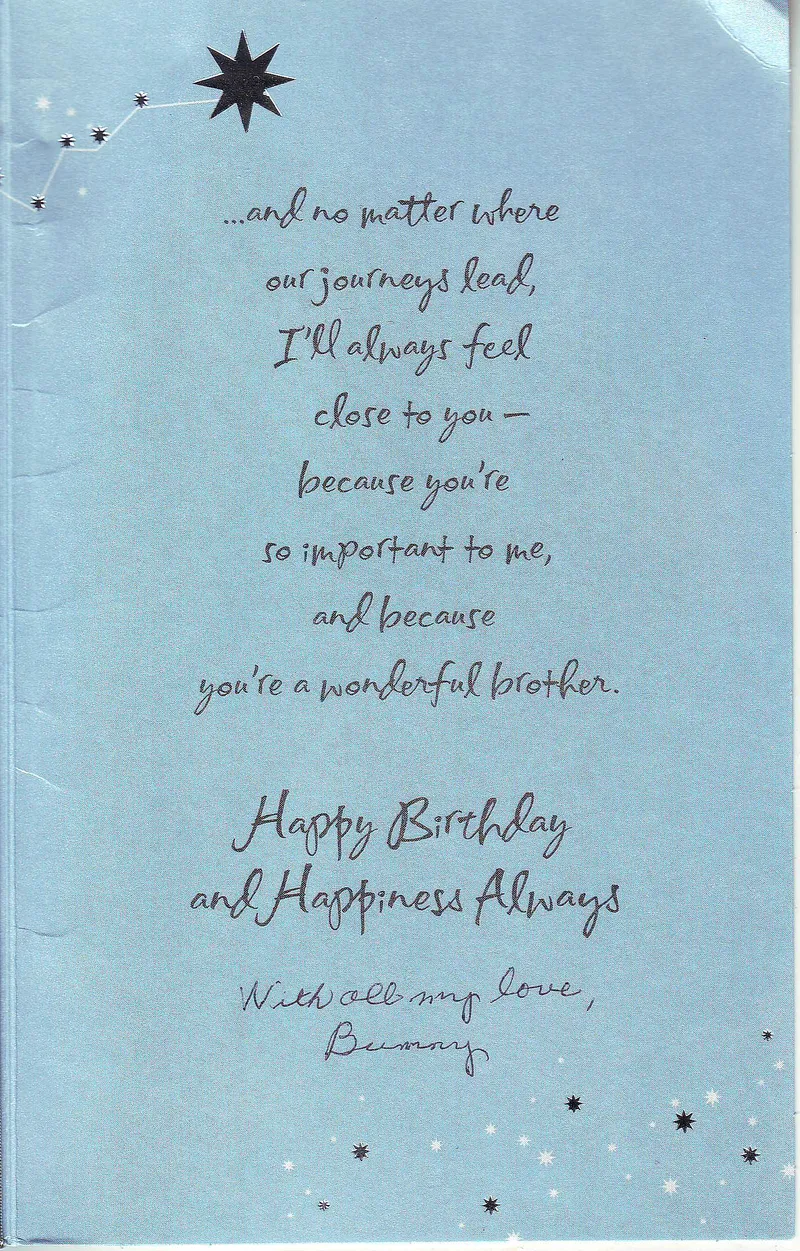 ...and no matter where
our journeys lead,
I'll always feel
close to you —
because you're
so important to me,
and because
you're a wonderful brother.
Happy Birthday
and Happiness Always
With all my love,
Bunny